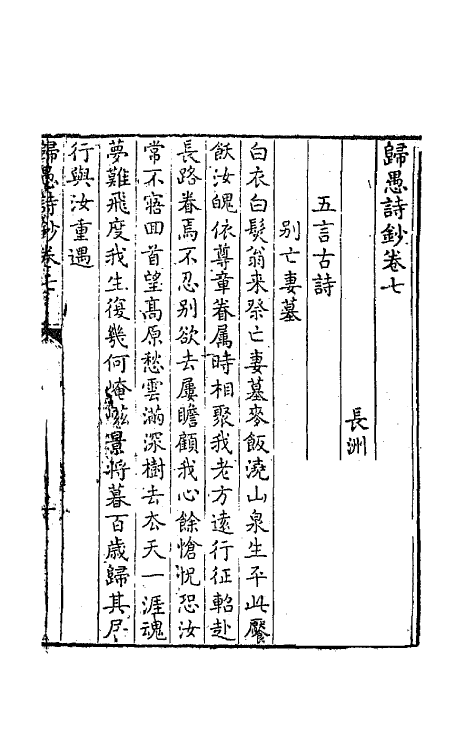 歸愚詩鈔卷七
長洲
五言古詩
别亡妻墓
白衣白髮翁来祭亡妻墓麥飯澆山泉生平此饜
飫汝魄依尊章眷属時相聚我老方遠行征軺赴
長路眷焉不忍别欲去屢瞻顧我心餘愴怳恐汝
常不寤囬首望髙原愁雲滿深樹去去天一涯魂
夢難飛度我生復幾何崦嵫景将暮百歳歸其
行與汝重遇
歸愚詩鈔卷七